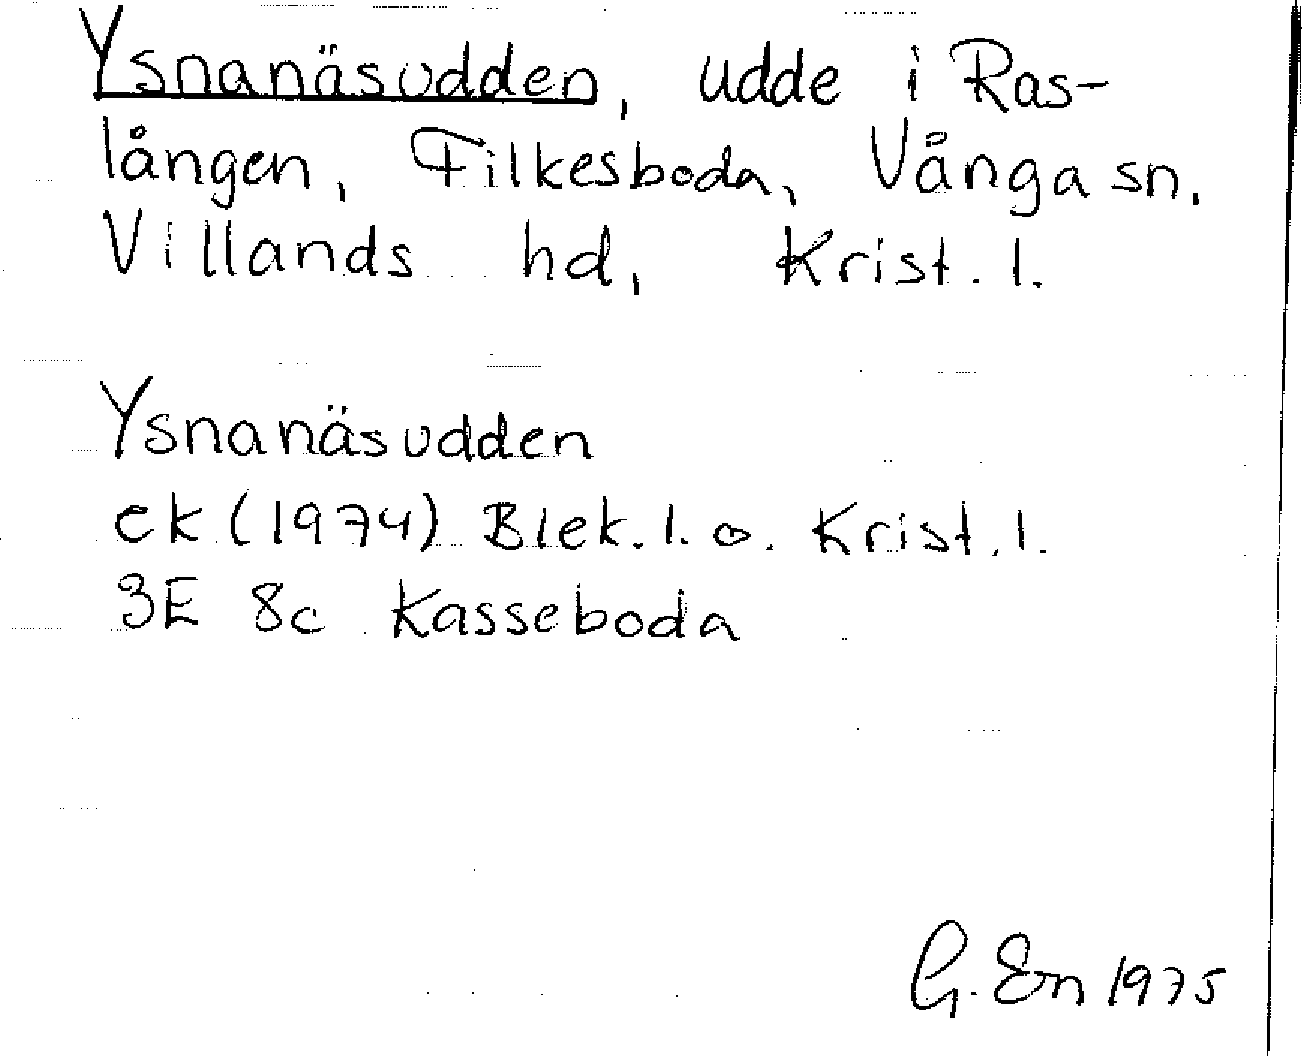 Ysnanäsudden, udde i Ras-
lången, Filkesboda, Vånga sn.
Villands hd, Krist. l.
Ysnanäsudden
ek (1974) Blek. l. o. Krist. l.
3E 8c Kasseboda
G. En 1975